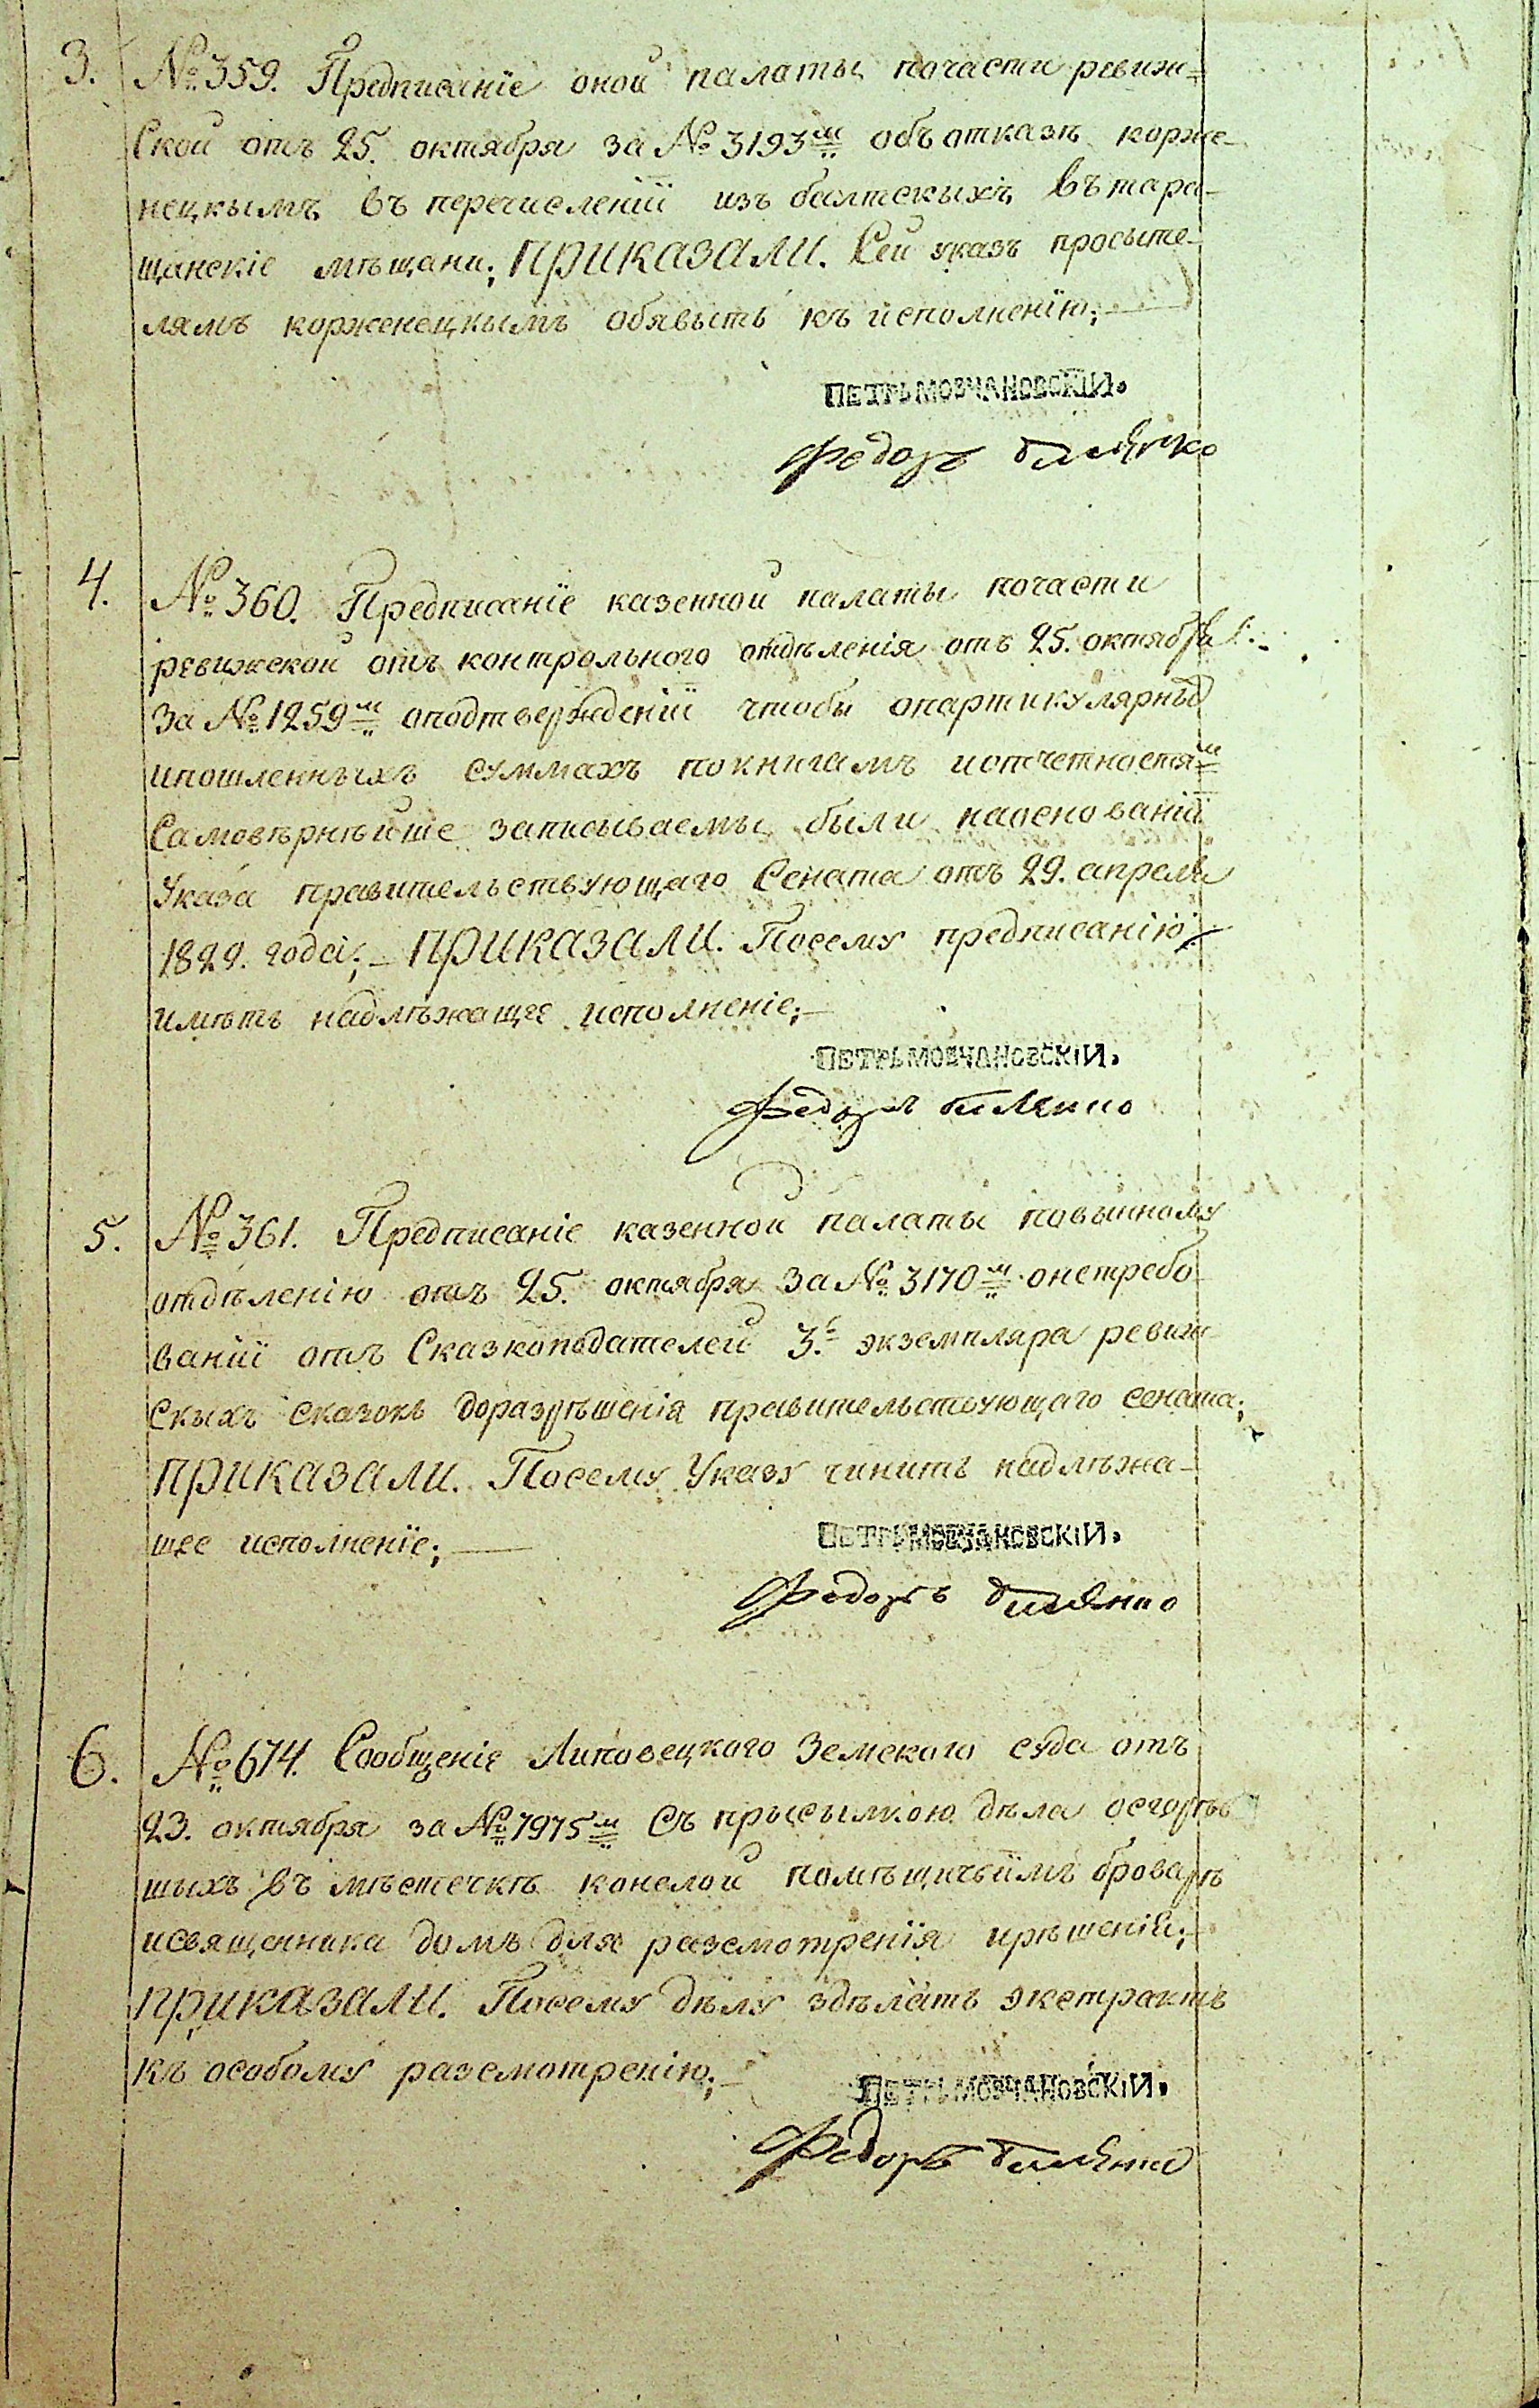 3. №359. Предписаніе оной палаты почасти ревиж=
ской отъ 25. октября за №3193м объ отказѣ корже-
нецкымъ въ перечисленіи изъ балтскыхъ въ тара-
щанскіе мѣщани; ПРИКАЗАЛИ. Сей указъ просыте-
лямъ корженецкымъ обявыть къ исполненію;
ПЕТРЪ МОВЧАНОВСКІЙ.
Федоръ
4. №360. Предписаніе казенной палаты почасти
ревижской отъ контрольного отдѣленія отъ 25. октября
за №1259м оподтвержденіи чтобы опартикулярныъ
ипошленныхъ суммахъ покнигамъ иопчетностям
самовѣрнѣйше записываемы были наоснованіи
указа правительствующаго Сената отъ 29. апреля
1829. года; ПРИКАЗАЛИ. Посему предписанію
имѣть надлѣжащее исполненіе;
ПЕТРЪ МОВЧАНОВСКІЙ.
Федоръ
5. №361. Предписаніе казенной палаты повынному
отдѣленію отъ 25. октября за №3170м онетребо
ваніи отъ Сказкоподателей 3.г экземпляра ревиж
скыхъ сказокъ доразрѣшенія правительствующаго сената;
ПРИКАЗАЛИ. Посему Указу чинить надлѣжа-
щее исполненіе;
ПЕТРЪ МОВЧАНОВСКІЙ.
Федоръ
6. №674. Сообщеніе Липовецкого Земского суда отъ
23. октября за №7975м Съ прысылкою дѣла осгорѣв
шыхъ въ мѣстечкѣ конелой помѣщичьимъ броварѣ
исвященника домъ для разсмотренія ирѣшеніи;
ПРИКАЗАЛИ. Посему дѣлу здѣлать экстрактъ
къ особому разсмотренію;
ПЕТРЪ МОВЧАНОВСКІЙ.
Федоръ